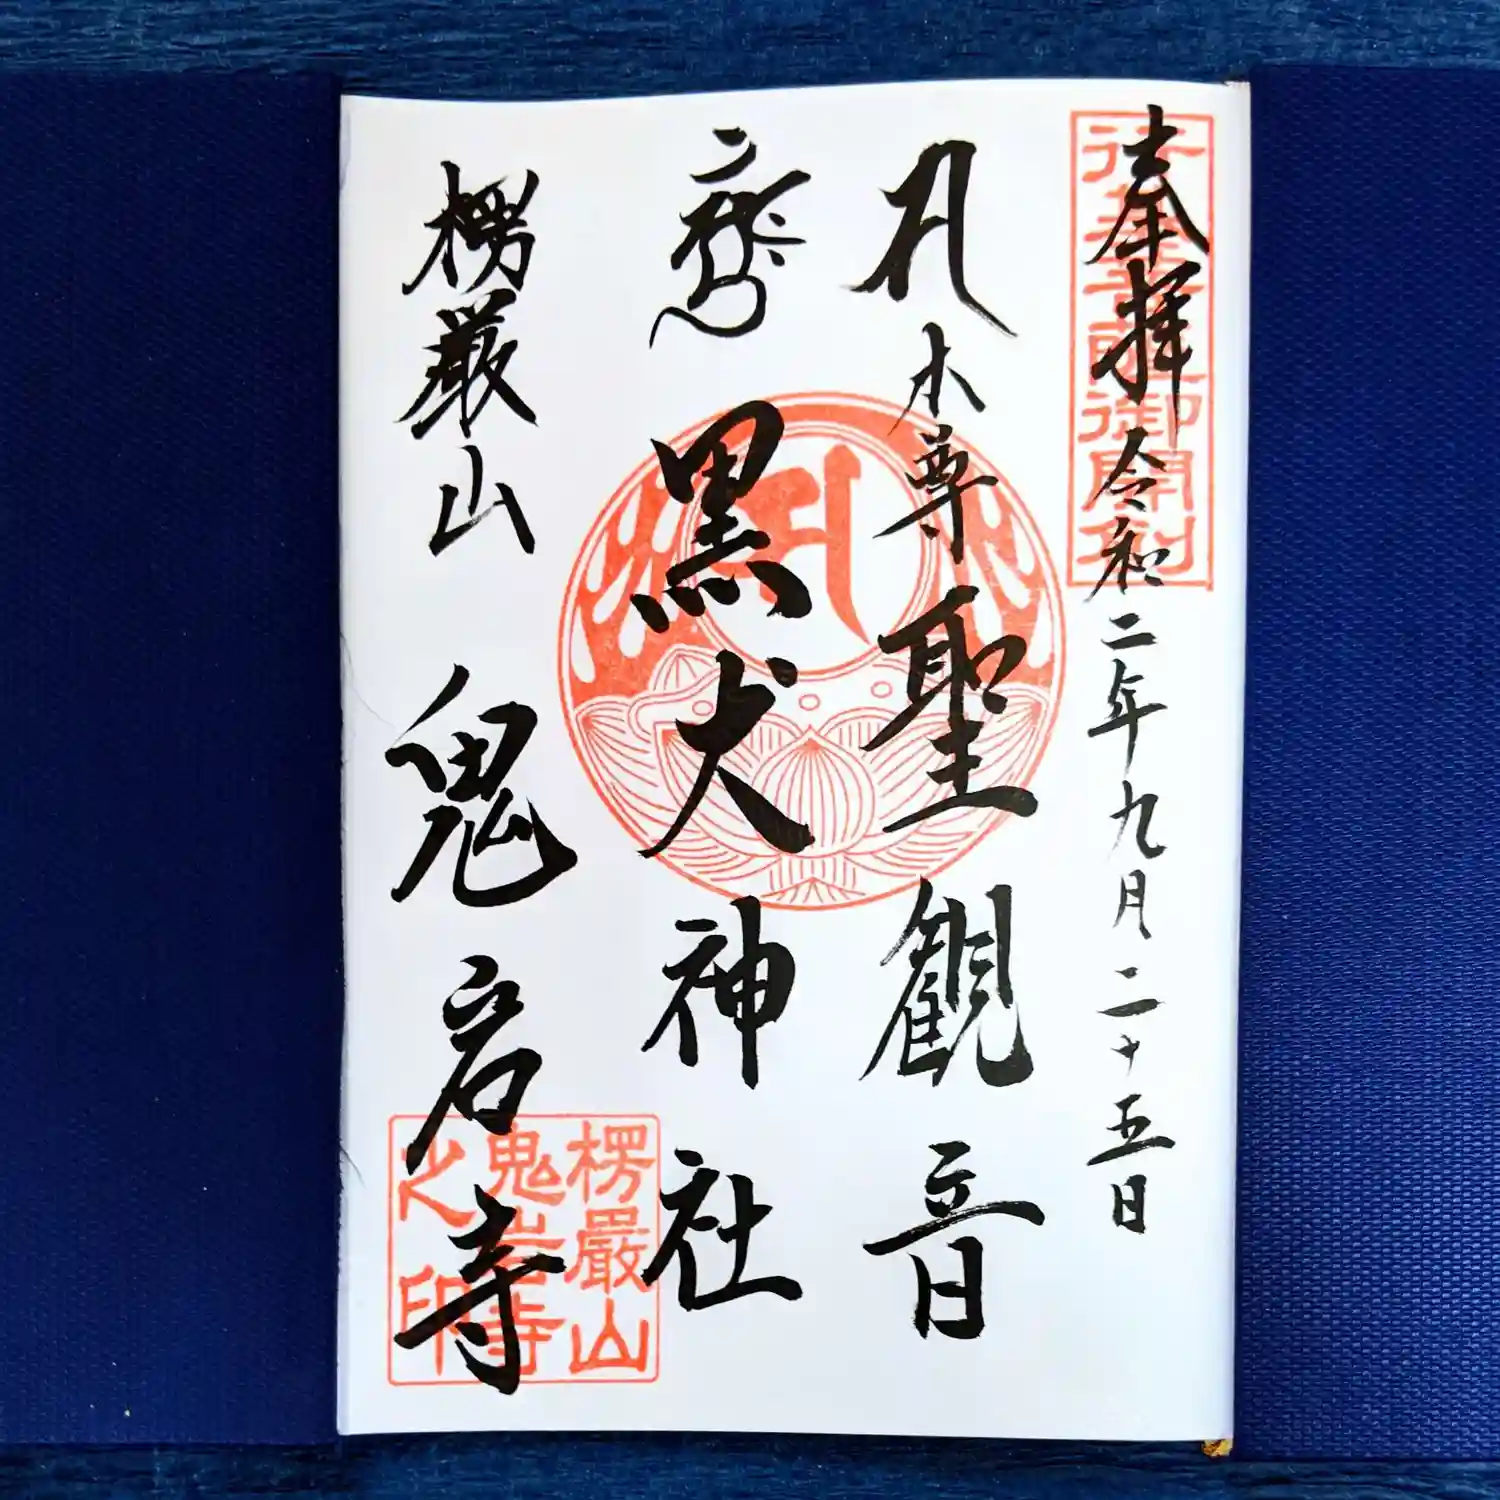 奉拝 令和二年九月二十五日
行基菩薩御開創
本尊 聖観音
黒犬神社
楞厳山 鬼岩寺
楞嚴山
鬼岩寺
之印